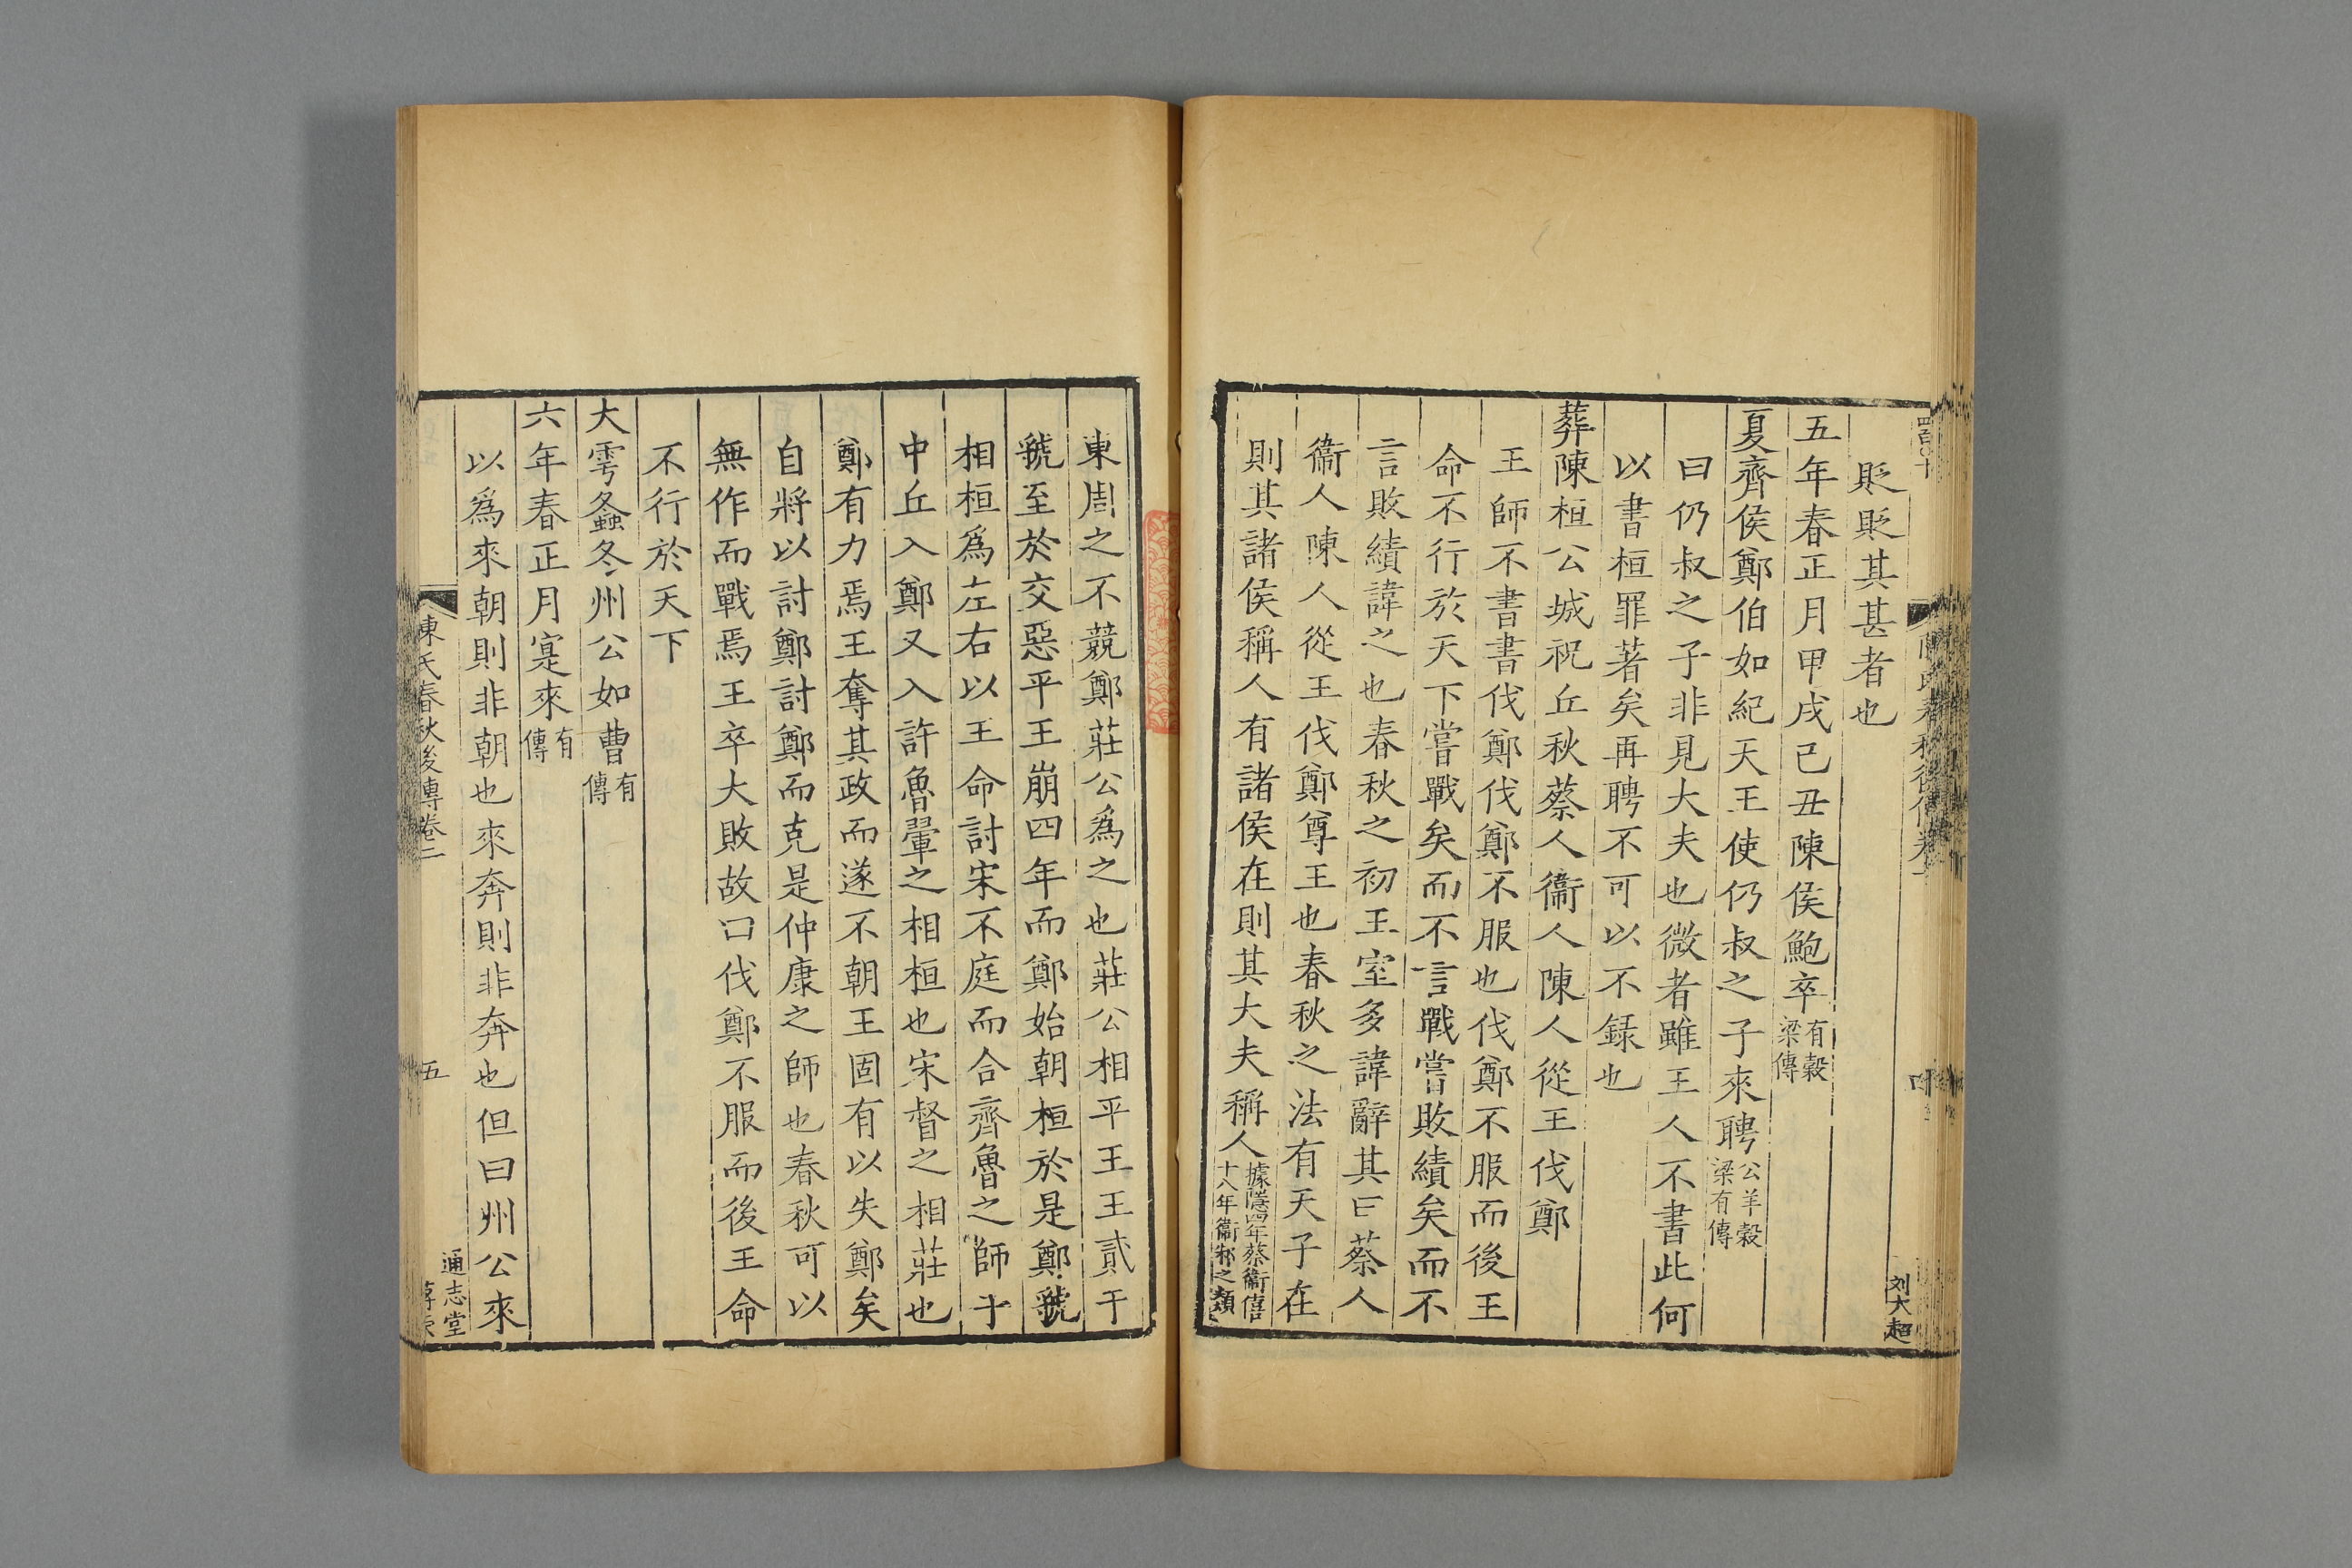 貶貶其甚者也
五年春正月甲戌己丑陳侯鮑卒有穀梁傳
夏齊侯鄭伯如紀天王使仍叔之子來聘公羊穀梁有傳
曰仍叔之子非見大夫也微者雖王人不書此何
以書桓罪著矣再聘不可以不録也
葬陳桓公城祝丘秋蔡人衞人陳人從王伐鄭
王師不書書伐鄭伐鄭不服也伐鄭不服而後王
命不行於天下嘗戰矣而不言戰嘗敗績矣而不
言敗績諱之也春秋之初王室多諱辭其曰蔡人
衞人陳人從王伐鄭尊王也春秋之法有天子在
則其諸侯稱人有諸侯在則其大夫稱人據隱四年蔡衞僖十八年衞邢之類
刘大超
東周之不競鄭莊公爲之也莊公相平王王貳于
虢至於交惡平王崩四年而鄭始朝桓於是鄭虢
相桓爲左右以王命討宋不庭而合齊魯之師于
中丘入鄭又入許魯翬之相桓也宋督之相莊也
鄭有力焉王奪其政而遂不朝王固有以失鄭矣
自將以討鄭討鄭而克是仲康之師也春秋可以
無作而戰焉王卒大敗故曰伐鄭不服而後王命
不行於天下
大雩螽冬州公如曹有傳
六年春正月寔來有傳
以爲來朝則非朝也來奔則非奔也但曰州公來
陳氏春秋後傳卷二
五
通志堂